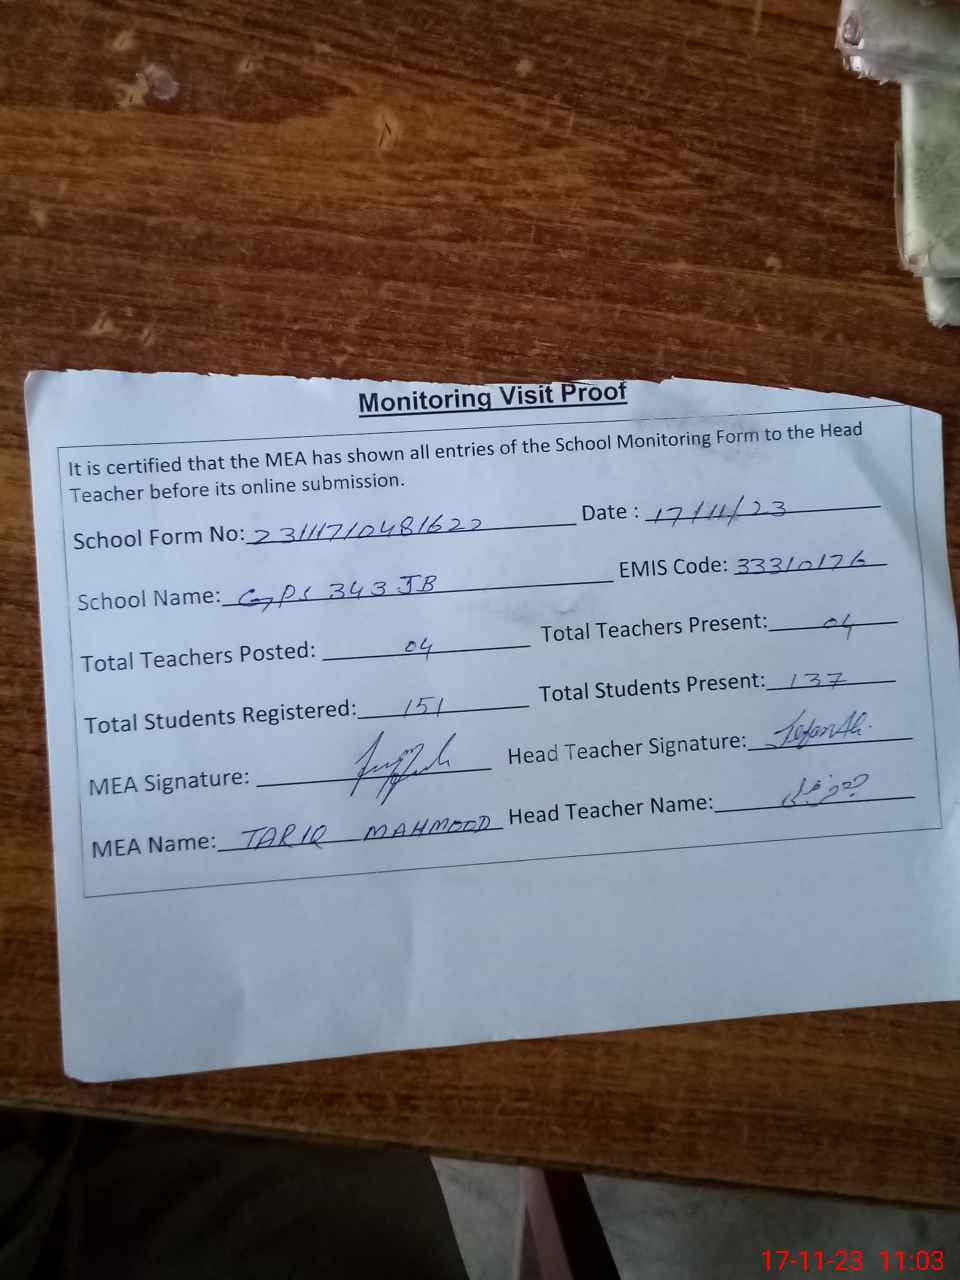 Monitoring Visit Proof
It is certified that the MEA has shown all entries of the School Monitoring Form to the Head
Teacher before its online submission.
School Form No: 23111710481622 Date : 17/11/23
School Name: GPS 343 JB EMIS Code: 33310176
Total Teachers Posted: 04 Total Teachers Present: 04
Total Students Registered: 151 Total Students Present: 137
MEA Signature: Head Teacher Signature:
MEA Name: TARIQ MAHMOOD Head Teacher Name:
17-11-23 11:03